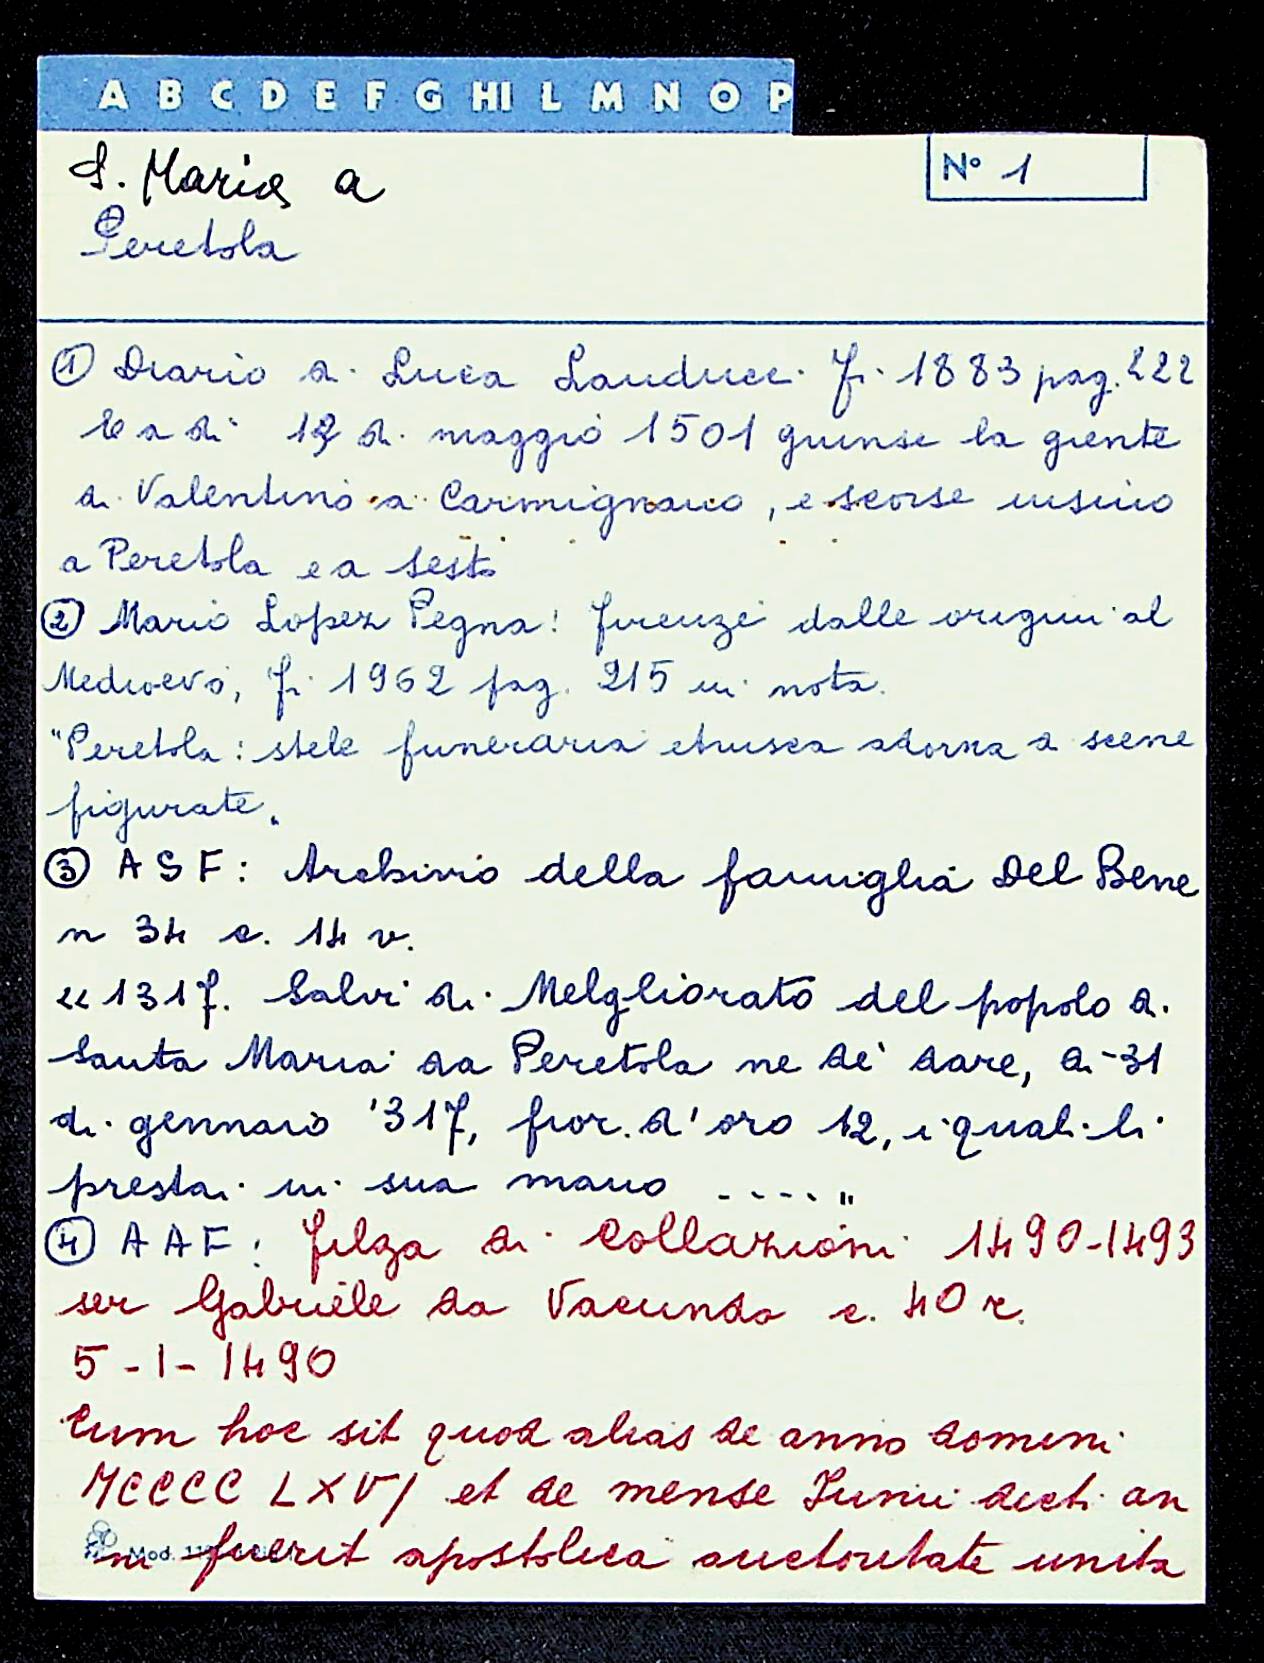 A B C D E F G HI L M N O P
S. Maria a
Nº 1
Peretola
① Diario di Luca Landucci Fi. 1883 pag. 222
E a dì 12 di maggio 1501 giunse la giente
di Valentino a Carmignano, e scorse insino
a Peretola e a Sesto
② Mario Lopez Pegna: Firenze dalle origini al
Medioevo, Fi. 1962 pag. 215 in nota.
"Peretola: stele funeraria etrusca adorna di scene
figurate"
③ ASF: Archivio della famiglia Del Bene
n 34 c. 14 v.
"1317. Salvi di Melgliorato del popolo di
Santa Maria da Peretola ne dè dare, dì 31
di gennaio '317, fior. d'oro 12, i quali li
prestai in sua mano ...."
④ AAF: Filza di Collazioni 1490-1493
ser Gabriele da Vacundo c. 40 r.
5-1-1490
Cum hoc sit quod alias de anno domini
MCCCC LXVI et de mense Junii dicti an
ni fuerit apostolica auctoritate unita
Mod.